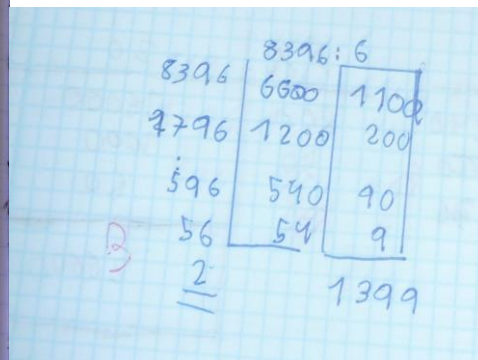 8396 : 6
8396 6600 1100
1796 1200 200
596 540 90
56 54 9
2 1399
B